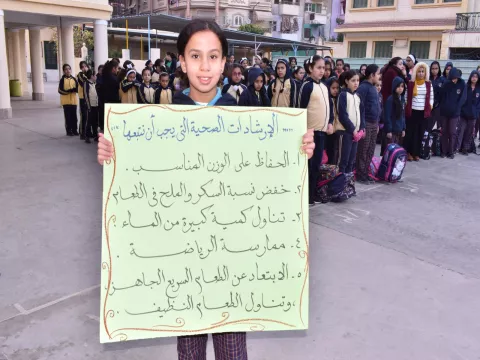 الإرشادات الصحية التى يجب أن نتبعها
١. الحفاظ على الوزن المناسب.
٢. خفض نسبة السكر والملح فى الطعام
٣. تناول كمية كبيرة من الماء.
٤. ممارسة الرياضة.
٥. الابتعاد عن الطعام السريع الجاهز
وتناول الطعام النظيف.